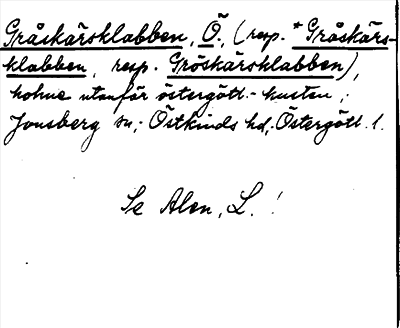 Gråskärsklabben, Ö., (resp. *Gråskärs-
klabben, resp. Gröskärsklabben),
holme utanför östergött.-kusten;
Jonsberg sn; Östkinds hd, Östergötl. l.
Se Alen, L.!